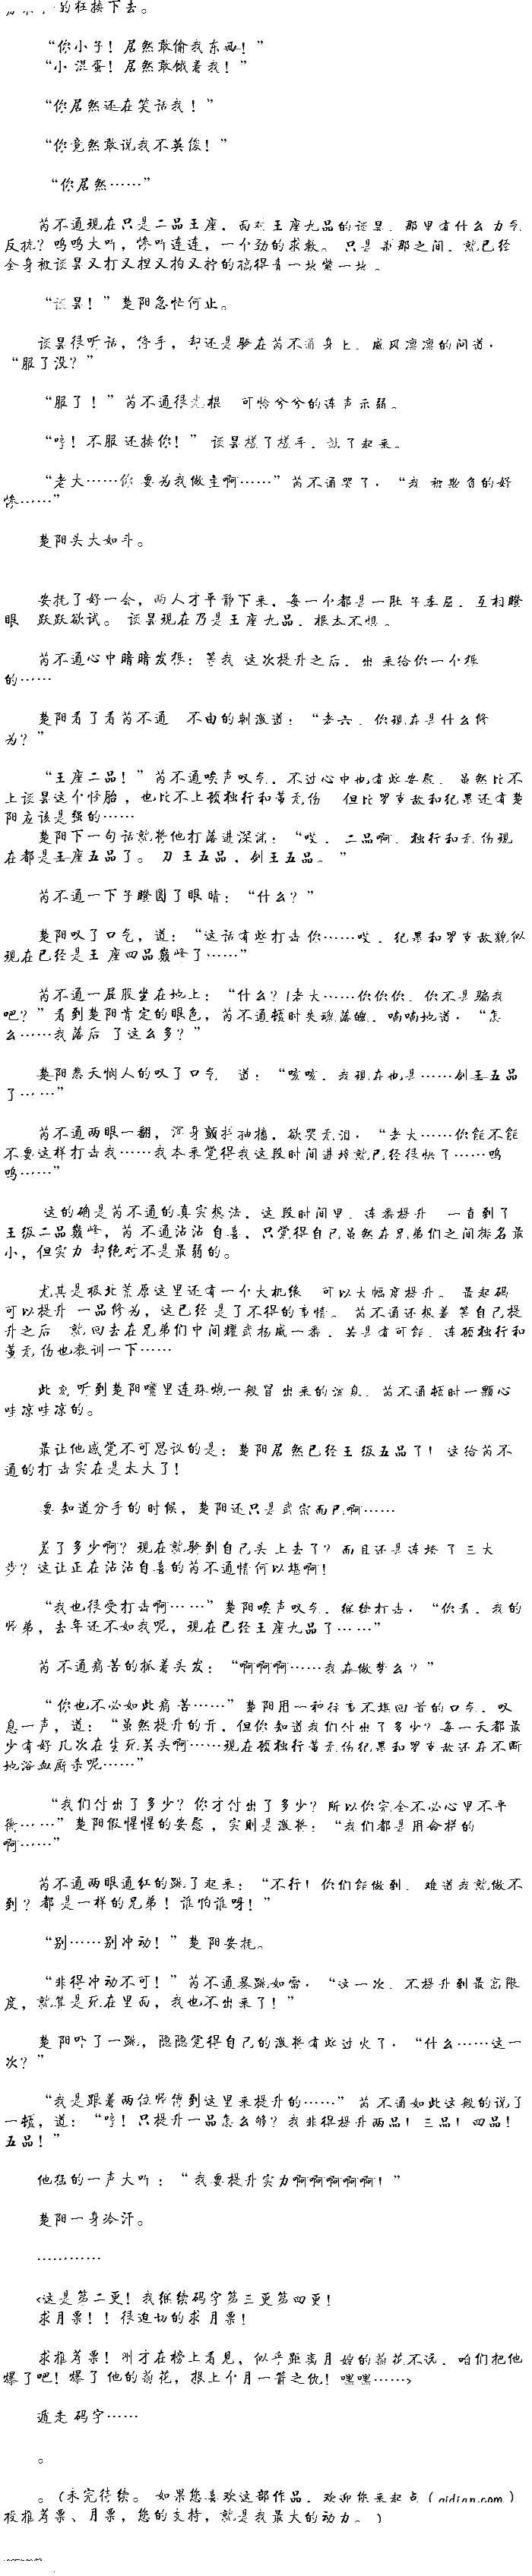 的狂揍下去。
“你小子！居然敢偷我东西！”
“小混蛋！居然敢饿着我！”
“你居然还在笑话我！”
“你竟然敢说我不英俊！”
“你居然……”
芮不通现在只是二品王座，面对王座九品的谈昙，那里有什么力气
反抗？呜呜大叫，惨叫连连，一个劲的求救。只是刹那之间，就已经
全身被谈昙又打又捏又掐又拧的搞得青一块紫一块。
“谈昙！”楚阳急忙何止。
谈昙很听话，停手，却还是骑在芮不通身上，威风凛凛的问道：
“服了没？”
“服了！”芮不通很光棍 可怜兮兮的连声示弱。
“哼！不服还揍你！”谈昙搓了搓手，站了起来。
“老大……你要为我做主啊……”芮不通哭了，“我被欺负的好
惨……”
楚阳头大如斗。
安抚了好一会，两人才平静下来，每一个都是一肚子委屈，互相瞪
眼 跃跃欲试。谈昙现在乃是王座九品，根本不惧。
芮不通心中暗暗发狠：等我这次提升之后，出来给你一个狠
的……
楚阳看了看芮不通 不由的刺激道：“老六，你现在是什么修
为？”
“王座二品！”芮不通唉声叹气，不过心中也有些安慰，虽然比不
上谈昙这个怪胎，也比不上顾独行和董无伤 但比罗克敌和纪墨还有楚
阳应该是强的……
楚阳下一句话就将他打落进深渊：“哎，二品啊，独行和无伤现
在都是王座五品了。刀王五品，剑王五品。”
芮不通一下子瞪圆了眼睛：“什么？”
楚阳叹了口气，道：“这话有些打击你……哎，纪墨和罗克敌貌似
现在已经是王座四品巅峰了……”
芮不通一屁股坐在地上：“什么？！老大……你你你，你不是骗我
吧？”看到楚阳肯定的眼色，芮不通顿时失魂落魄，喃喃地道，“怎
么……我落后了这么多？”
楚阳悲天悯人的叹了口气 道：“咳咳，我现在也是……剑王五品
了……”
芮不通两眼一翻，浑身颤抖抽搐，欲哭无泪，“老大……你能不能
不要这样打击我……我本来觉得我这段时间进境就已经很快了……呜
呜……”
这的确是芮不通的真实想法，这段时间里，连番提升 一直到了
王级二品巅峰，芮不通沾沾自喜，只觉得自己虽然在兄弟们之间排名最
小，但实力却绝对不是最弱的。
尤其是极北荒原这里还有一个大机缘 可以大幅度提升。最起码
可以提升一品修为，这已经是了不得的事情。芮不通还想着等自己提
升之后 就回去在兄弟们中间耀武扬威一番，若是有可能，连顾独行和
董无伤也教训一下……
此刻听到楚阳嘴里连珠炮一般冒出来的消息，芮不通顿时一颗心
哇凉哇凉的。
最让他感觉不可思议的是：楚阳居然已经王级五品了！这给芮不
通的打击实在是太大了！
要知道分手的时候，楚阳还只是武宗而已啊……
差了多少啊？现在就骑到自己头上去了？而且还是连跨了三大
步？这让正在沾沾自喜的芮不通情何以堪啊！
“我也很受打击啊……”楚阳唉声叹气，继续打击，“你看，我的
师弟，去年还不如我呢，现在已经王座九品了……”
芮不通痛苦的抓着头发：“啊啊啊……我在做梦么？”
“你也不必如此痛苦……”楚阳用一种往事不堪回首的口气，叹
息一声，道：“虽然提升的开，但你知道我们付出了多少？每一天都最
少有好几次在生死关头啊……现在顾独行董无伤纪墨和罗克敌还在不断
地浴血厮杀呢……”
“我们付出了多少？你才付出了多少？所以你完全不必心里不平
衡……”楚阳假惺惺的安慰，实则是激将：“我们都是用命拼的
啊……”
芮不通两眼通红的跳了起来：“不行！你们能做到，难道我就做不
到？都是一样的兄弟！谁怕谁呀！”
“别……别冲动！”楚阳安抚。
“非得冲动不可！”芮不通暴跳如雷，“这一次，不提升到最高限
度，就算是死在里面，我也不出来了！”
楚阳吓了一跳，隐隐觉得自己的激将有些过火了，“什么……这一
次？”
“我是跟着两位师傅到这里来提升的……”芮不通如此这般的说了
一顿，道：“哼！只提升一品怎么够？我非得提升两品！三品！四品！
五品！”
他猛的一声大叫：“我要提升实力啊啊啊啊啊！”
楚阳一身冷汗。
…………
<这是第二更！我继续码字第三更第四更！
求月票！！很迫切的求月票！
求推荐票！刚才在榜上看见，似乎距离月娘的菊花不远，咱们把他
爆了吧！爆了他的菊花，报上个月一箭之仇！嘿嘿……>
遁走码字……
。
。（未完待续。如果您喜欢这部作品，欢迎您来起点（qidian.com）
投推荐票、月票，您的支持，就是我最大的动力。）